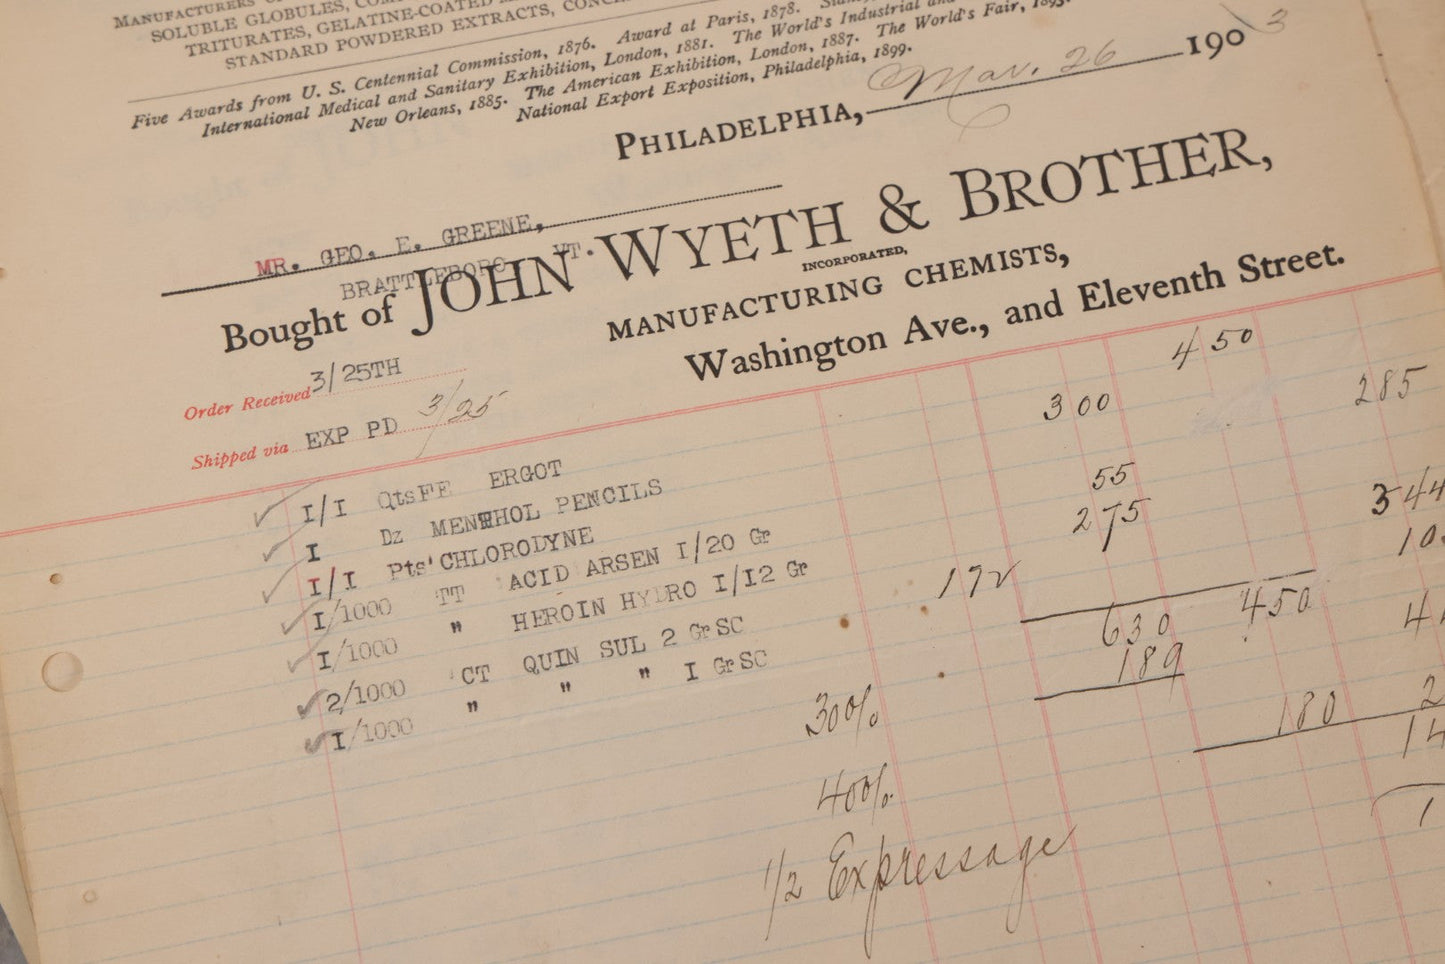 MANUFACTURERS
SOLUBLE GLOBULES,
TRITURATES, GELATINE-COATED
STANDARD POWDERED EXTRACTS,
Five Awards from U. S. Centennial Commission, 1876. Award at Paris, 1878.
International Medical and Sanitary Exhibition, London, 1881. The World's Industrial and
New Orleans, 1885. The American Exhibition, London, 1887. The World's Fair, 1893.
National Export Exposition, Philadelphia, 1899.
PHILADELPHIA, Mar. 26 1903
MR. GEO. E. GREENE,
BRATTLEBORO VT.
Bought of JOHN WYETH & BROTHER,
INCORPORATED,
MANUFACTURING CHEMISTS,
Washington Ave., and Eleventh Street.
Order Received 3/25TH
Shipped via EXP PD 3/25
I/I Qts FE ERGOT 450
I Dz MENTHOL PENCILS 300 285
I/I Pts' CHLORODYNE
I/1000 TT ACID ARSEN I/20 Gr 55 344
I/1000 " HEROIN HYDRO I/I2 Gr 275 10
2/1000 CT QUIN SUL 2 Gr SC 172
I/1000 " " " I Gr SC 630 450
189
30% 180 2
40% 14
1/2 Expressage 1